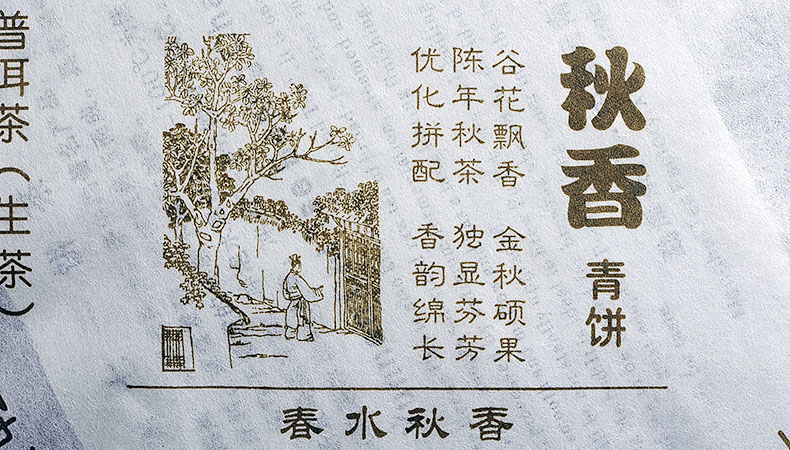 秋香
青饼
谷花飘香 金秋硕果
陈年秋茶 独显芬芳
优化拼配 香韵绵长
春水秋香
普洱茶（生茶）